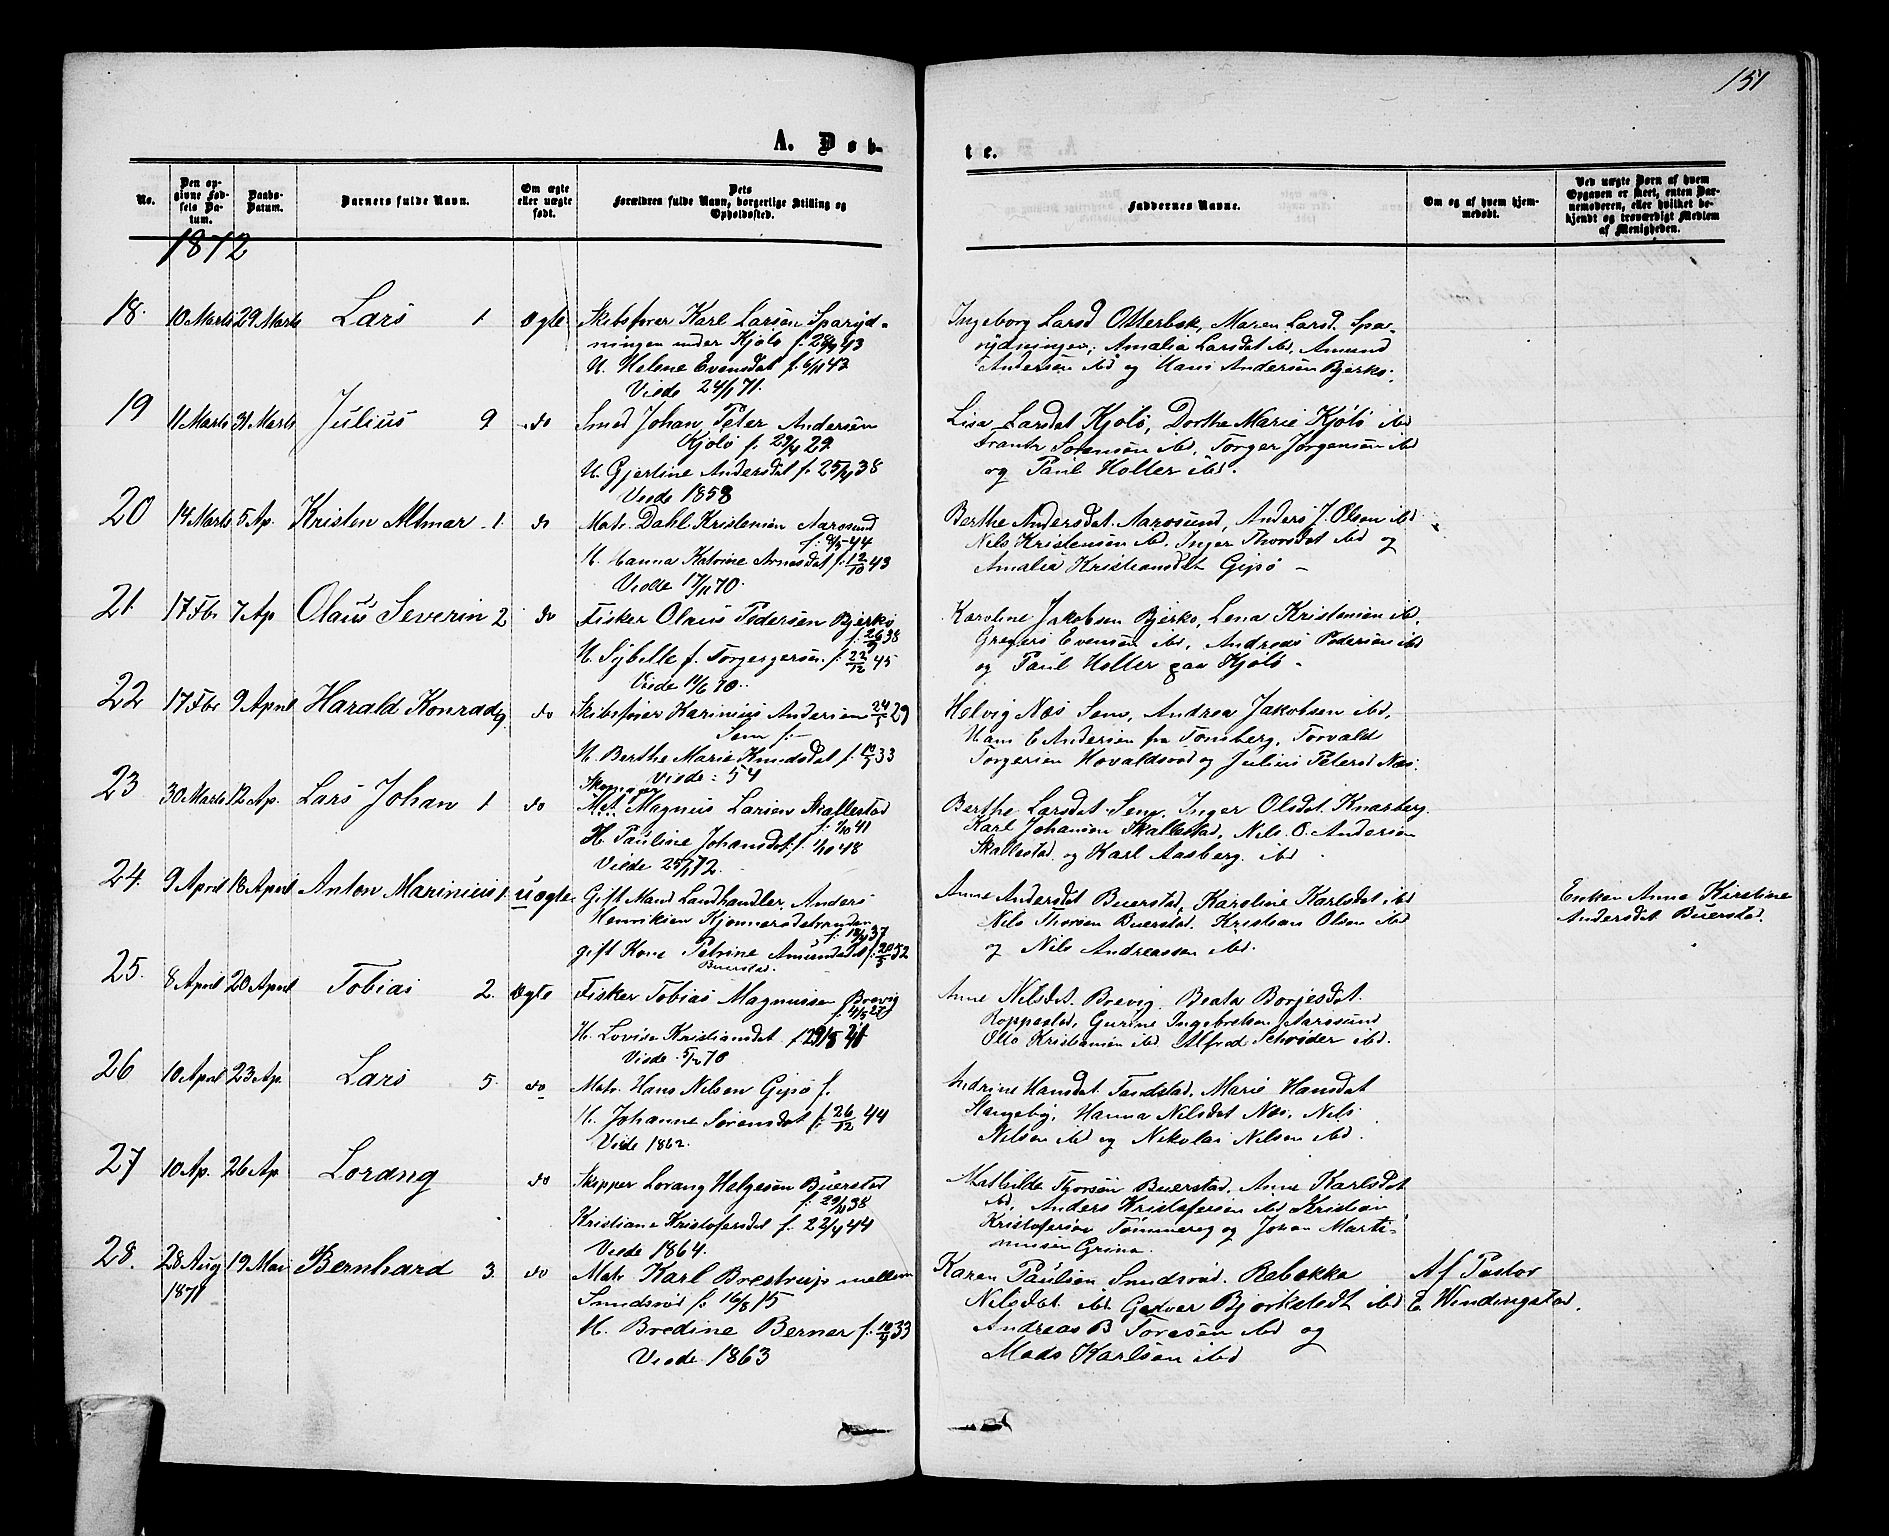 151
A. Døb-
te.
No.
Den opgivne Fødsels Datum.
Daabs-Datum.
Barnets fulde Navn.
Om ægte eller uægte født.
Dets Forældres fulde Navn, borgerlige Stilling og Opholdssted.
Faddernes Navne.
Om og af hvem hjemmedøbt.
Ved uægte Børn af hvem Opgaven er skeet, enten Barnemoderen, eller hvilket bekjendt og troværdigt Medlem af Menigheden.
1872
18. 10 Marts 29 Marts Lars 1 Ægte Skibsfører Karl Larsen Sparyd-
ningen under Kjölö f. 28/9 43
H. Helene Evensdat f. 6/11 42
Viede 24/1 71.
Ingeborg Larsd Otterbek, Maren Larsd. Spa-
rydningen, Amalia Larsdat ibd, Amund
Andersen ibd og Hans Andersen Bjerkö.
19 11 Marts 31 Marts Julius 9 do Smed Johan Peter Andersen
Kjölö f. 29/4 29
H. Gjertine Andersdat f. 25/4 38
Viede 1858
Lisa Larsdat Kjölö, Dorthe Marie Kjölö ibd
Frantz Sörensen ibd, Torger Jörgensen ibd
og Paul Holter ibd.
20 14 Marts 5 Ap. Kristen Altmar 1. do Matr. Dahl Kristensen Aarosund
f. 9/5 44
H. Hanna Katrine Arnesdat f. 12/10 43
Viede 17/11 70
Berthe Andersdat Aarosund, Anders J. Olsen ibd
Nils Kristensen ibd. Inger Thorsdat ibd og
Amalia Kristiansdt Gipö -
21. 17 Fbr 7 Ap Olaus Severin 2 do Fisker Olaus Pedersen Bjerkö
f. 26/9 38
H. Sybille f. Torgergersen f. 22/12 45
Viede 11/6 70.
Karoline Jakobsen Bjerkö, Lena Kristensen ibd,
Gregers Evensen ibd, Andreas Pedersen ibd
og Paul Holter paa Kjölö -
22 17 Fbr 9 April Harald Konrad 9 do Skibsfører Karinius Andersen 24/1 29
Sem f:-
H. Berthe Marie Knudsdat f. 10/9 33
Viede: 54
Helvig Næs Sem, Andrea Jakobsen ibd,
Hans E Andersen fra Tönsberg, Torvald
Torgersen Hovaldsröd og Julius Petersd Næs.
23 30 Marts 12 Ap. Lars Johan 1 do Skomager
Mat. Magnus Larsen Skallestad
f. 1/10 41
H. Pauline Johansdat f. 1/10 48
Viede 25/1 72.
Berthe Larsdat Sem, Inger Olsdat Knarberg
Karl Johansen Skallestad, Nils O. Andersen
Skallestad og Karl Aasberg ibd
24. 9 April 13 April Anton Marinius 1. uægte Gift Mand Landhandler Anders
Henriksen Kjønnerødstranden
f. 18/11 37
gift Kone Petrine Amundsdat f. 20/5 52
Buerstad.
Anne Andersdt Buerstad, Karoline Karlsdat ibd
Nils Thorsen Buerstad. Kristian Olsen ibd
og Nils Andreassen ibd.
Enken Anne Kirstine
Andersdt Buerstad.
25. 8 April 20 April Tobias 2. Ægte Fisker Tobias Magnussen Brevig
f. 4/5 27
H. Lovise Kristiansdat f 29/8 41
Viede 5/2 70
Anne Nilsdat Brevig Beata Borjesdat
Roppestad, Gurine Ingebretsen Aarosund
Otto Kristiansen ibd Alfred Schröder ibd.
26 10 April 23 Ap Lars 5. do Matr. Hans Nilsen Gipö f.
H. Johanne Sörensdat f. 26/12 44
Viede 1862.
Andrine Hansdat Tandstad, Marie Hansdat
Stangeby, Hanna Nilsdat Næs, Nils
Nilsen ibd og Nikolai Nilsen ibd.
27 10 Ap. 26 Ap Lorang do Skipper Lorang Helgesen Buerstad
f. 29/11 38
Kristiane Kristofersdat f. 22/4 44
Viede 1864.
Mathilde Thorsen Buerstad, Anne Karlsdat
ibd, Anders Kristofersen ibd Kristian
Kristofersen Tömmereg og Johan Marti-
niusen Grina.
28. 28 Aug 19 Mai Bernhard 3. do Matr Karl Brestrup mellem
1871
Smidsröd f. 16/8 15
H. Bredine Berner f. 10/9 33
Viede 1863
Karen Paulsen Smidsröd. Rebekka
Nilsdat ibd. Gedver Bjørkstedt ibd
Andreas B Toresen ibd og
Mads Karlsen ibd
Af Pastor
E. Windingstad.